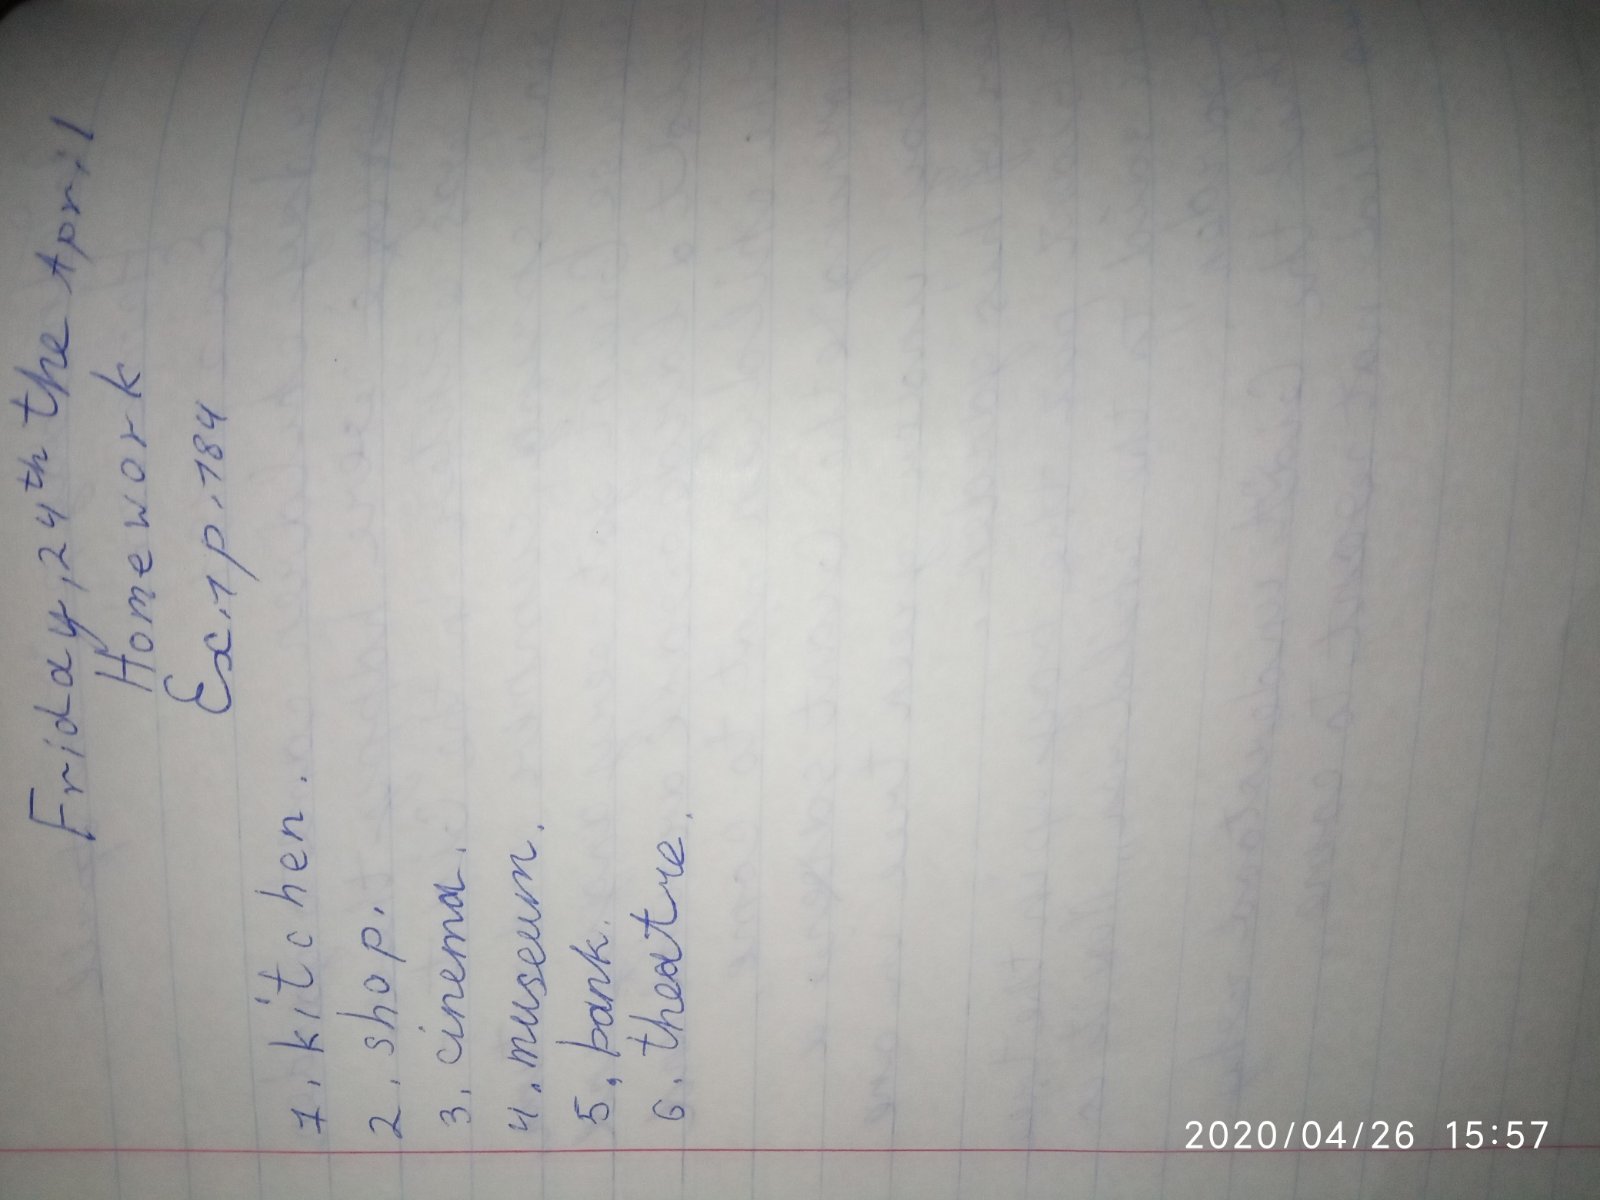 Friday, 24th the April
Homework
Ex.1 p.184
1. kitchen.
2. shop.
3. cinema.
4. museum.
5. bank.
6. theatre.
2020/04/26 15:57